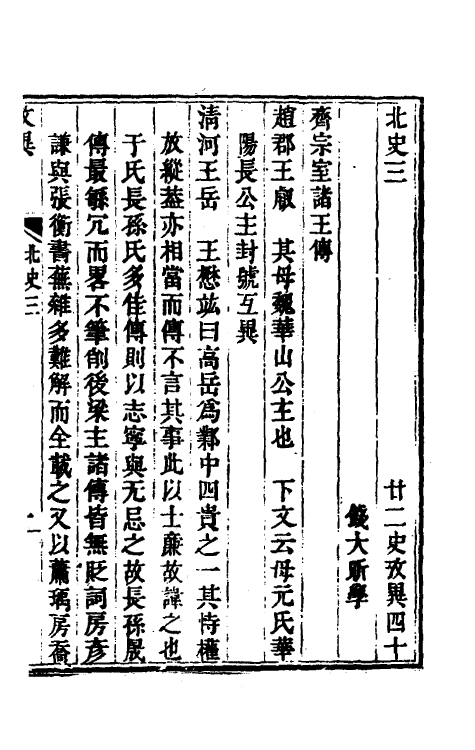 北史三　廿二史攷異四十
錢大昕學
齊宗室諸王傳
趙郡王叡　其母魏華山公主也　下文云母元氏華
陽長公主封號互異
清河王岳　王懋竑曰高岳爲鄴中四貴之一其恃權
放縱葢亦相當而傳不言其事此以士廉故諱之也
于氏長孫氏多佳傳則以志寧與无忌之故長孫晟
傳最繇冗而畧不筆削後梁主諸傳皆無貶詞房彥
謙與張衡書蕪雜多難解而全載之又以蕭瑀房喬
攷異　北史三　一